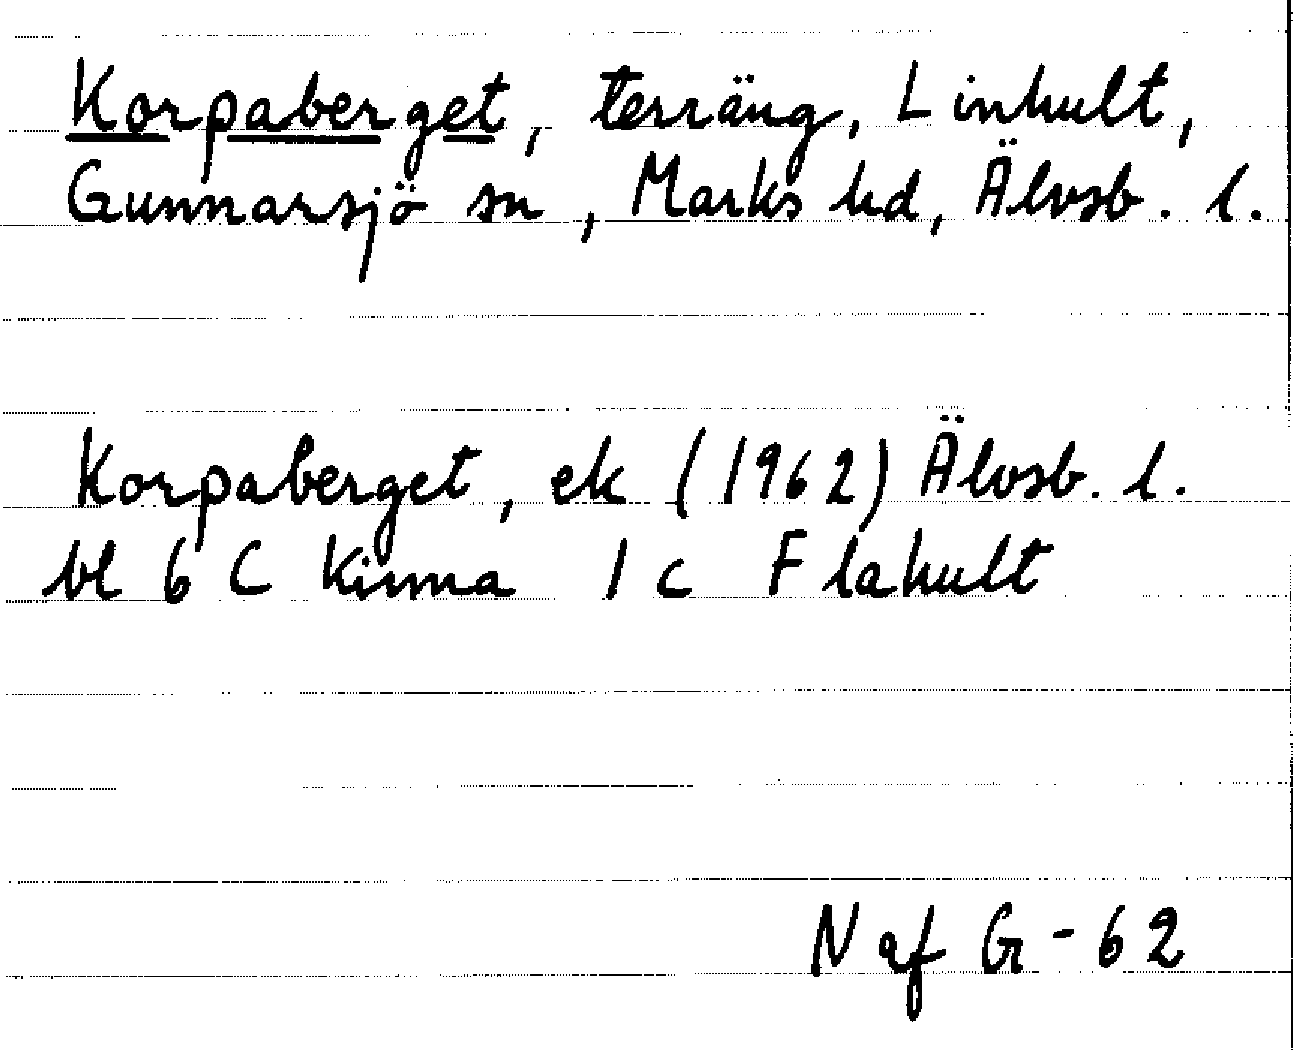 Korpaberget, terräng, Linhult,
Gunnarsjö sn, Marks hd, Älvsb. l.
Korpaberget, ek (1962) Älvsb. l.
bl 6 C Kinna 1 c Flahult
N af G-62